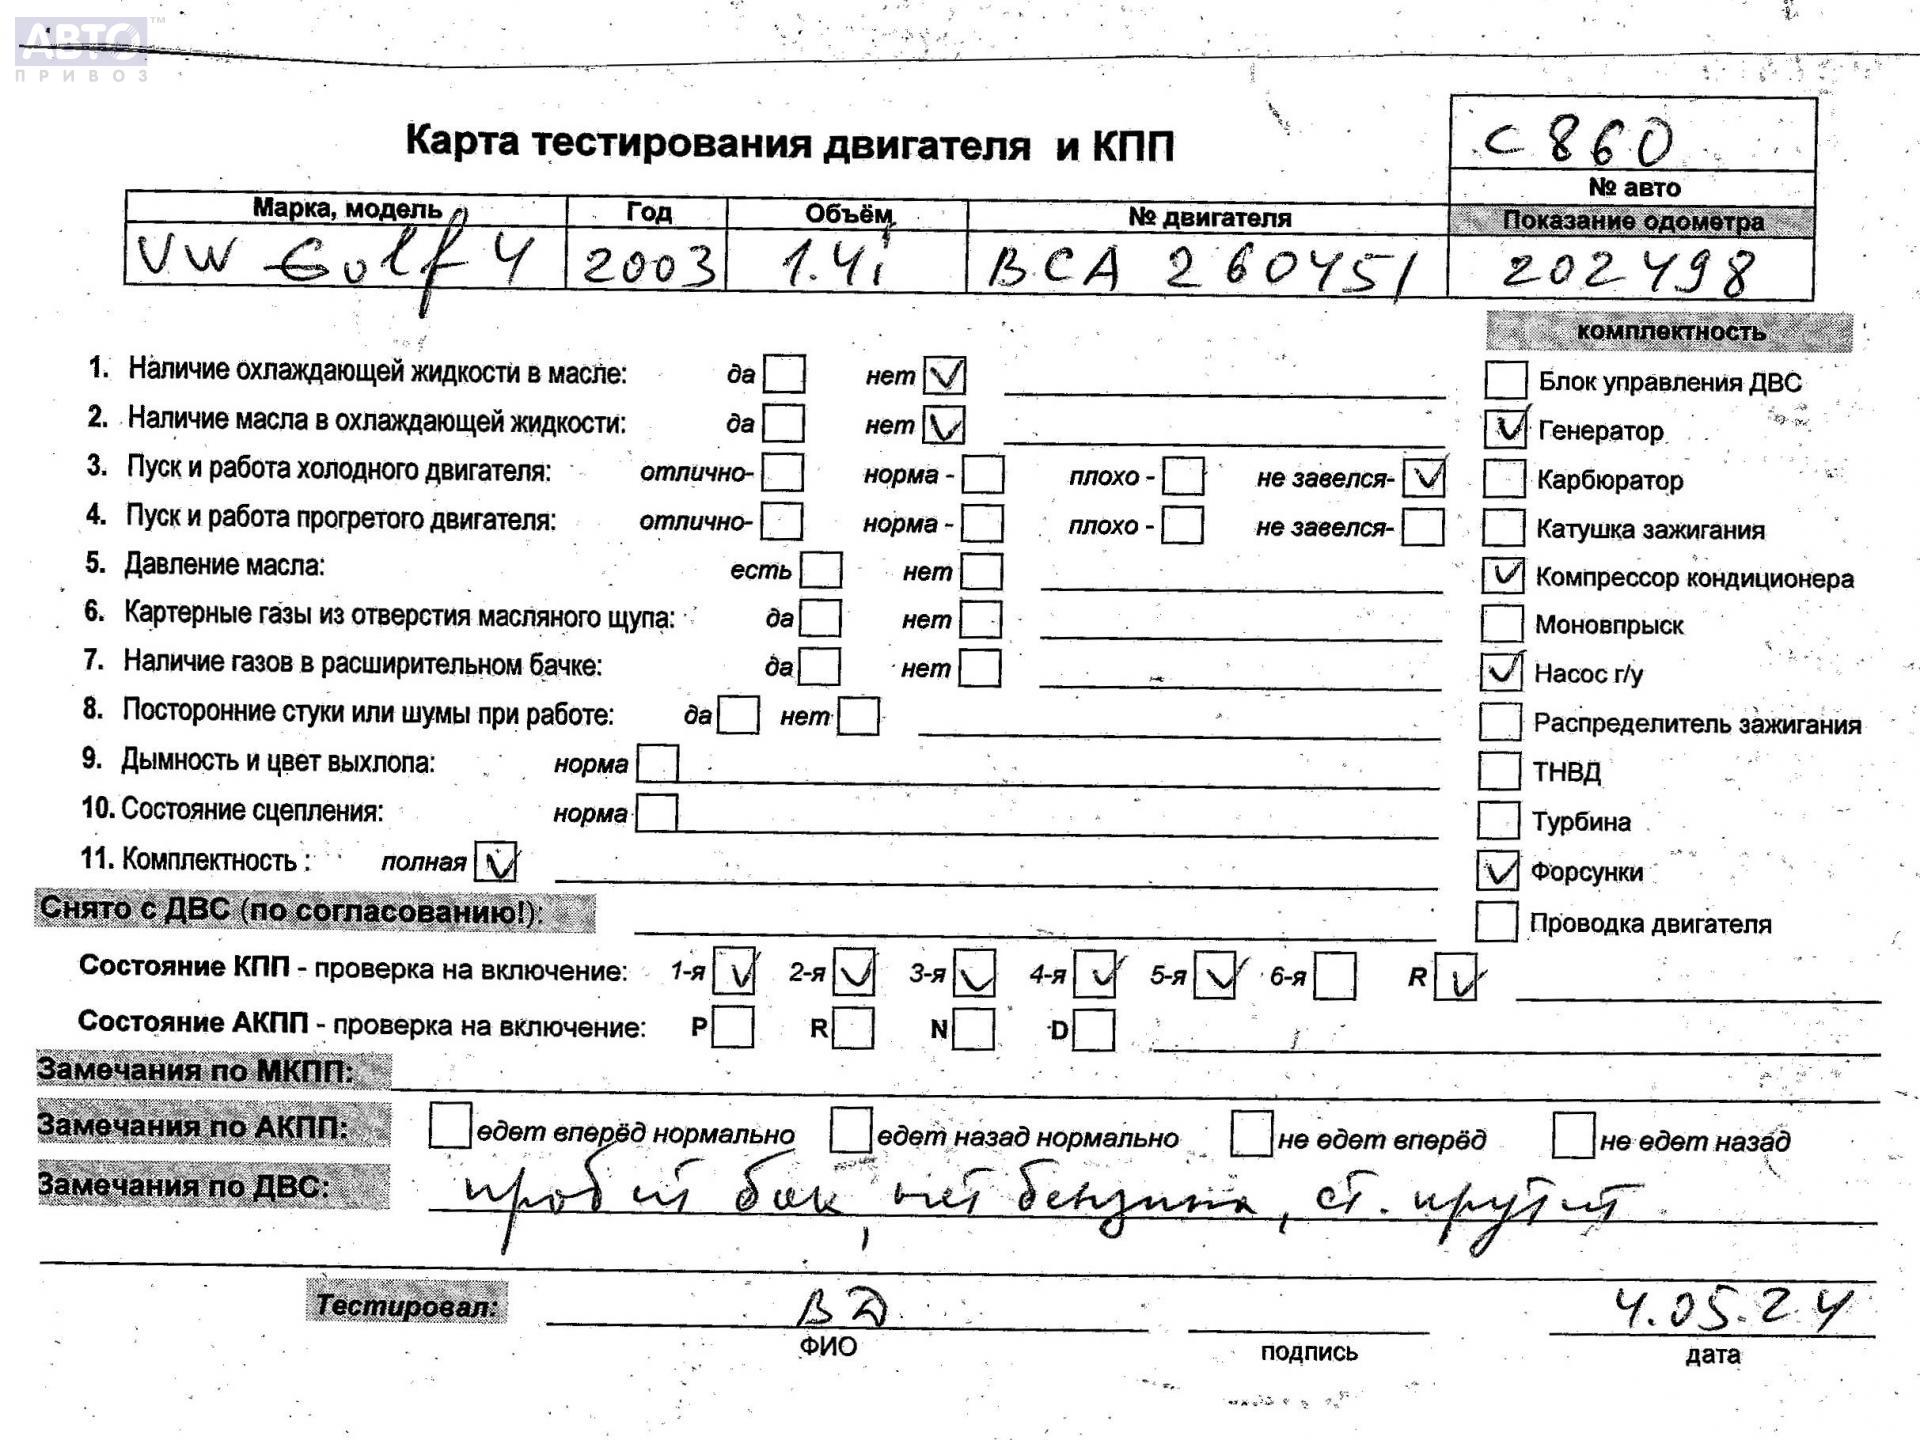 АВТО™
ПРИВОЗ
Карта тестирования двигателя и КПП
С 860
№ авто
Марка, модель Год Объём № двигателя Показание одометра
VW Golf 4 2003 1.4i BCA 260451 202498
комплектность
1. Наличие охлаждающей жидкости в масле: да нет ✓
2. Наличие масла в охлаждающей жидкости: да нет ✓
3. Пуск и работа холодного двигателя: отлично- норма - плохо - не завелся- ✓
4. Пуск и работа прогретого двигателя: отлично- норма - плохо - не завелся-
5. Давление масла: есть нет
6. Картерные газы из отверстия масляного щупа: да нет
7. Наличие газов в расширительном бачке: да нет
8. Посторонние стуки или шумы при работе: да нет
9. Дымность и цвет выхлопа: норма
10. Состояние сцепления: норма
11. Комплектность : полная ✓
Блок управления ДВС
✓ Генератор
Карбюратор
Катушка зажигания
✓ Компрессор кондиционера
Моновпрыск
✓ Насос г/у
Распределитель зажигания
ТНВД
Турбина
✓ Форсунки
Проводка двигателя
Снято с ДВС (по согласованию!):
Состояние КПП - проверка на включение: 1-я ✓ 2-я ✓ 3-я ✓ 4-я ✓ 5-я ✓ 6-я R ✓
Состояние АКПП - проверка на включение: P R N D
Замечания по МКПП:
Замечания по АКПП: едет вперёд нормально едет назад нормально не едет вперёд не едет назад
Замечания по ДВС: пробит бак, нет бензина, ст. крутит
Тестировал: ВД 4.05.24
ФИО подпись дата